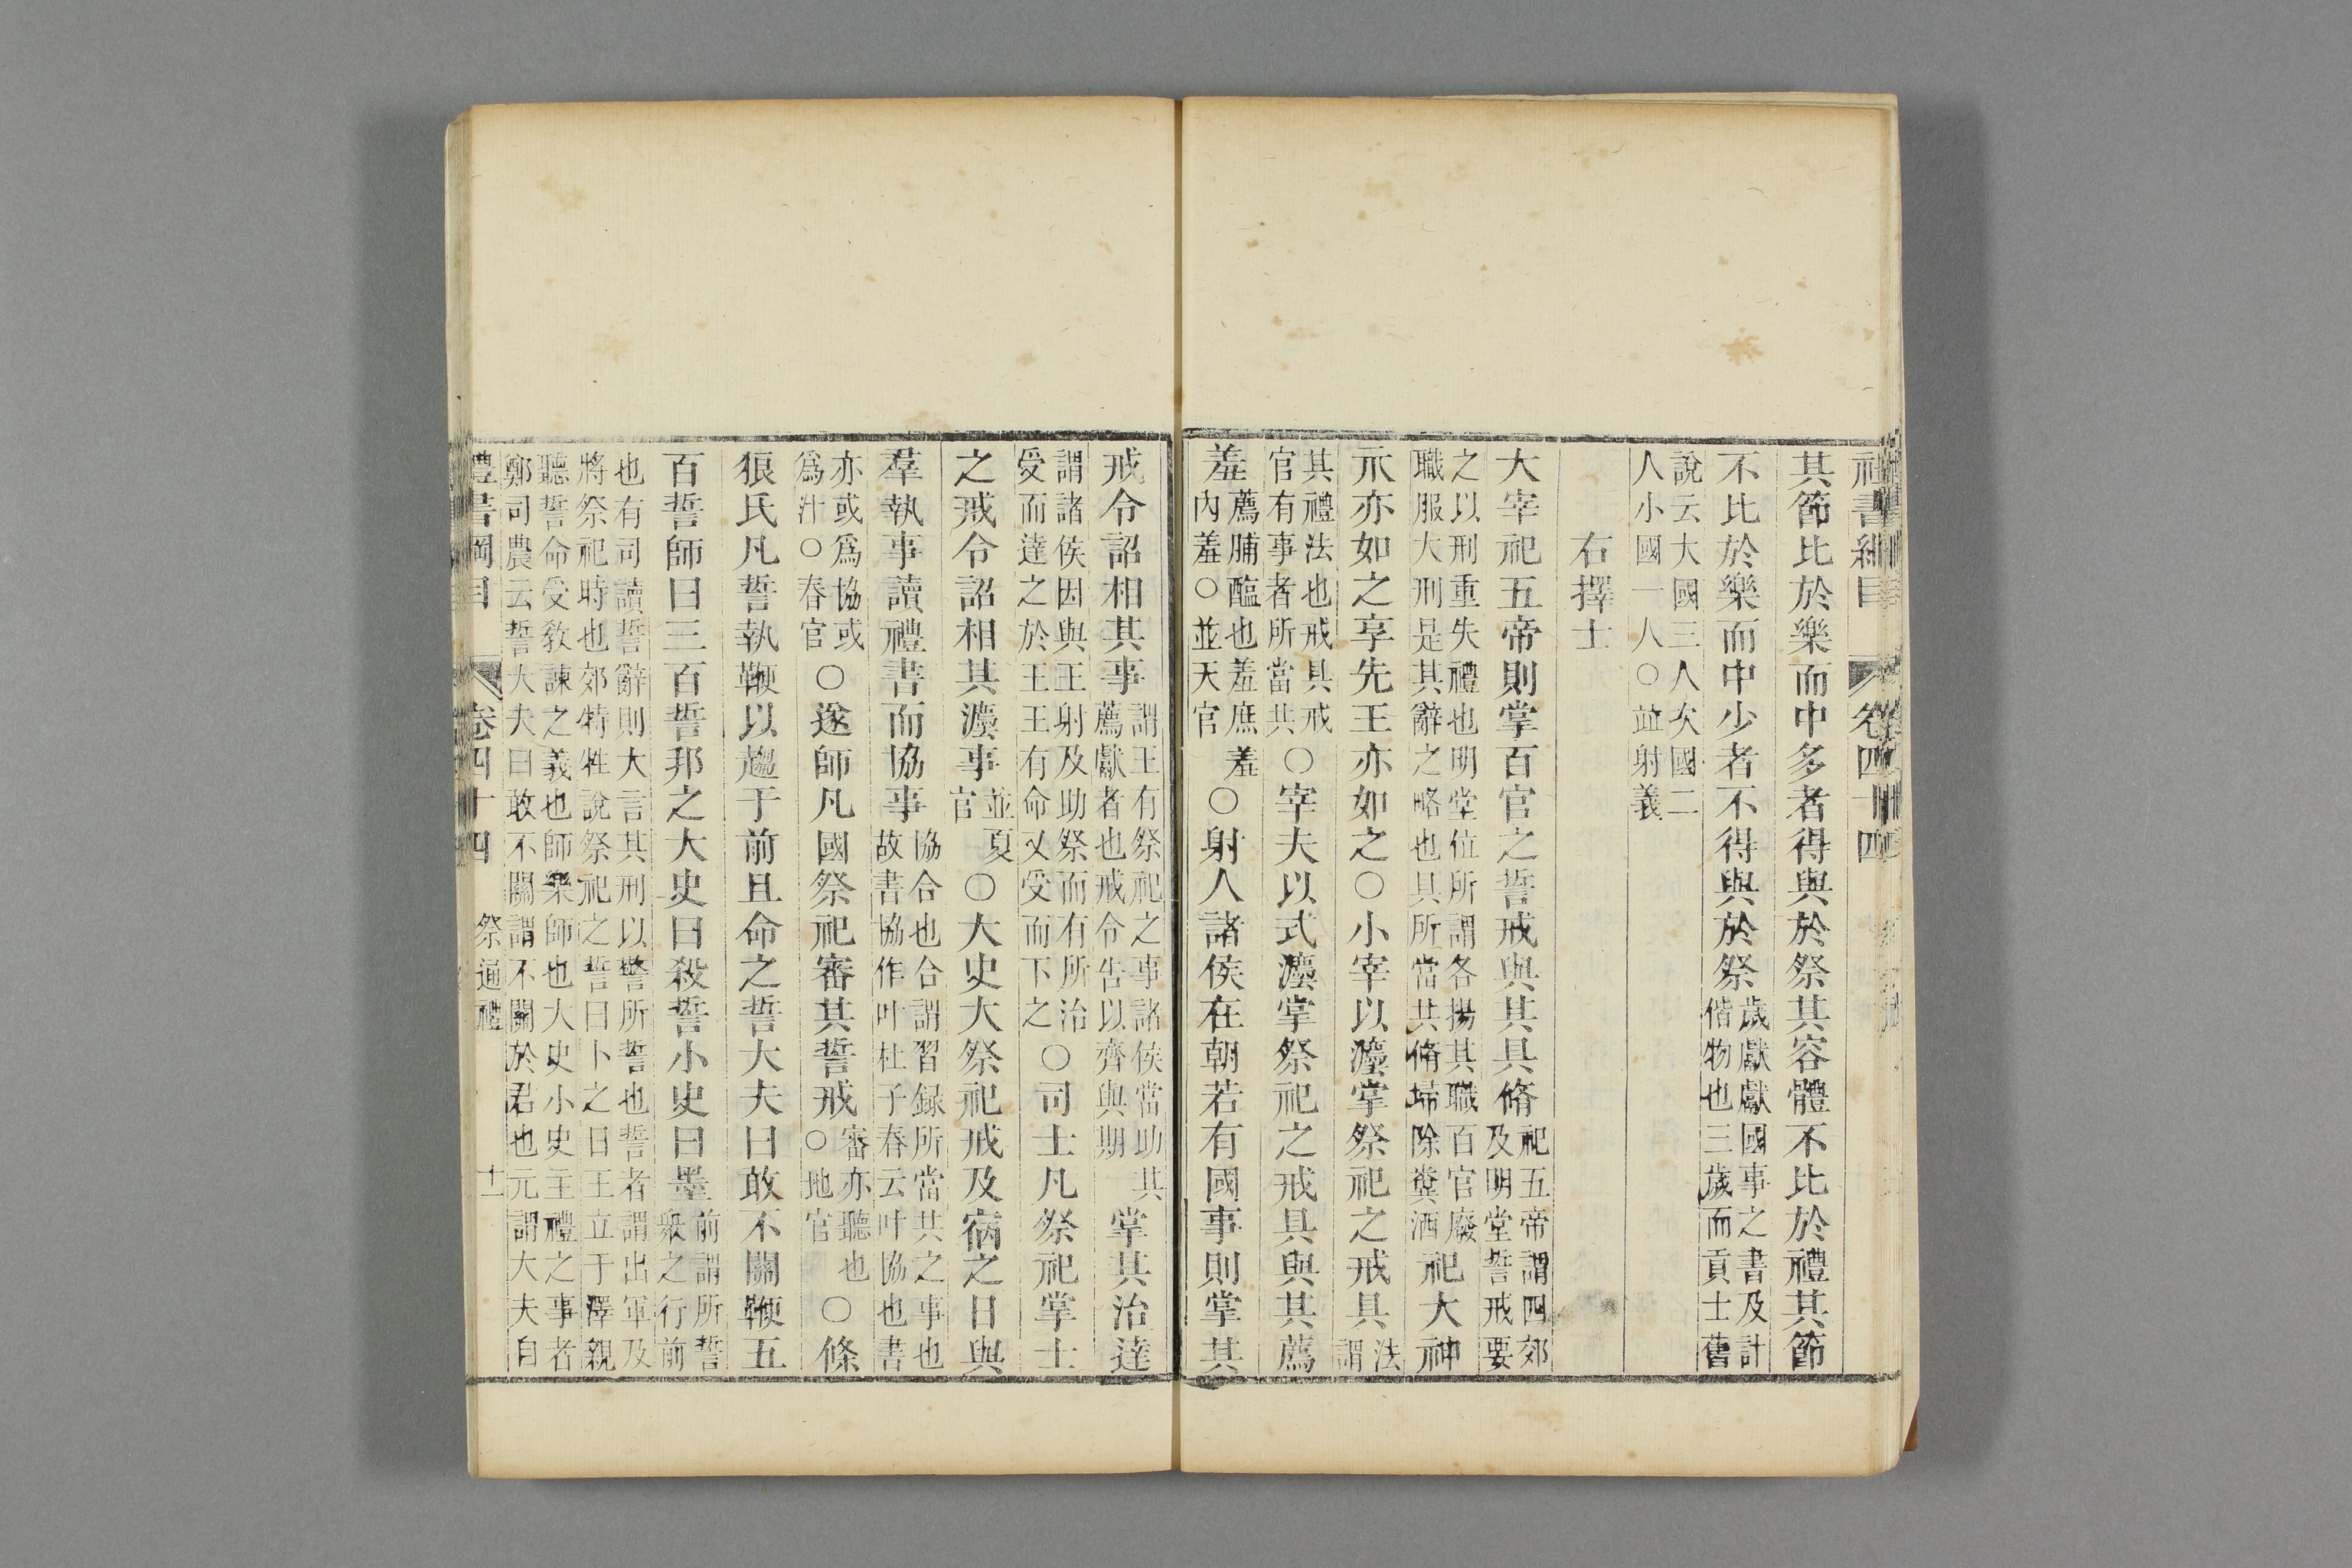 禮書綱目 卷四十四
其節比於樂而中多者得與於祭其容體不比於禮其節
不比於樂而中少者不得與於祭歲獻獻國事之書及計偕物也三歲而貢士舊
說云大國三人次國二人小國一人○並射義
右擇士
大宰祀五帝則掌百官之誓戒與其具脩祀五帝謂四郊及明堂誓戒要
之以刑重失禮也明堂位所謂各揚其職百官廢職服大刑是其辭之略也具所當共脩掃除糞洒祀大神
示亦如之享先王亦如之○小宰以灋掌祭祀之戒具法謂
其禮法也戒具戒官有事者所當共○宰夫以式灋掌祭祀之戒具與其薦
羞薦脯醢也羞庶羞內羞○並天官○射人諸侯在朝若有國事則掌其
戒令詔相其事謂王有祭祀之事諸侯當助其薦獻者也戒令告以齊與期掌其治達
謂諸侯因與王射及助祭而有所治受而達之於王王有命又受而下之○司士凡祭祀掌士
之戒令詔相其灋事並夏官○大史大祭祀戒及宿之日與
羣執事讀禮書而協事協合也合謂習録所當共之事也故書協作叶杜子春云叶協也書
亦或爲協或爲汁○春官○遂師凡國祭祀審其誓戒審亦聽也○地官○條
狼氏凡誓執鞭以趨于前且命之誓大夫曰敢不關鞭五
百誓師曰三百誓邦之大史曰殺誓小史曰墨前謂所誓衆之行前
也有司讀誓辭則大言其刑以警所誓也誓者謂出軍及將祭祀時也郊特牲說祭祀之誓曰卜之日王立于澤親
聽誓命受敎諫之義也師樂師也大史小史主禮之事者鄭司農云誓大夫曰敢不關謂不關於君也元謂大夫自
禮書綱目 卷四十四 祭通禮 十一